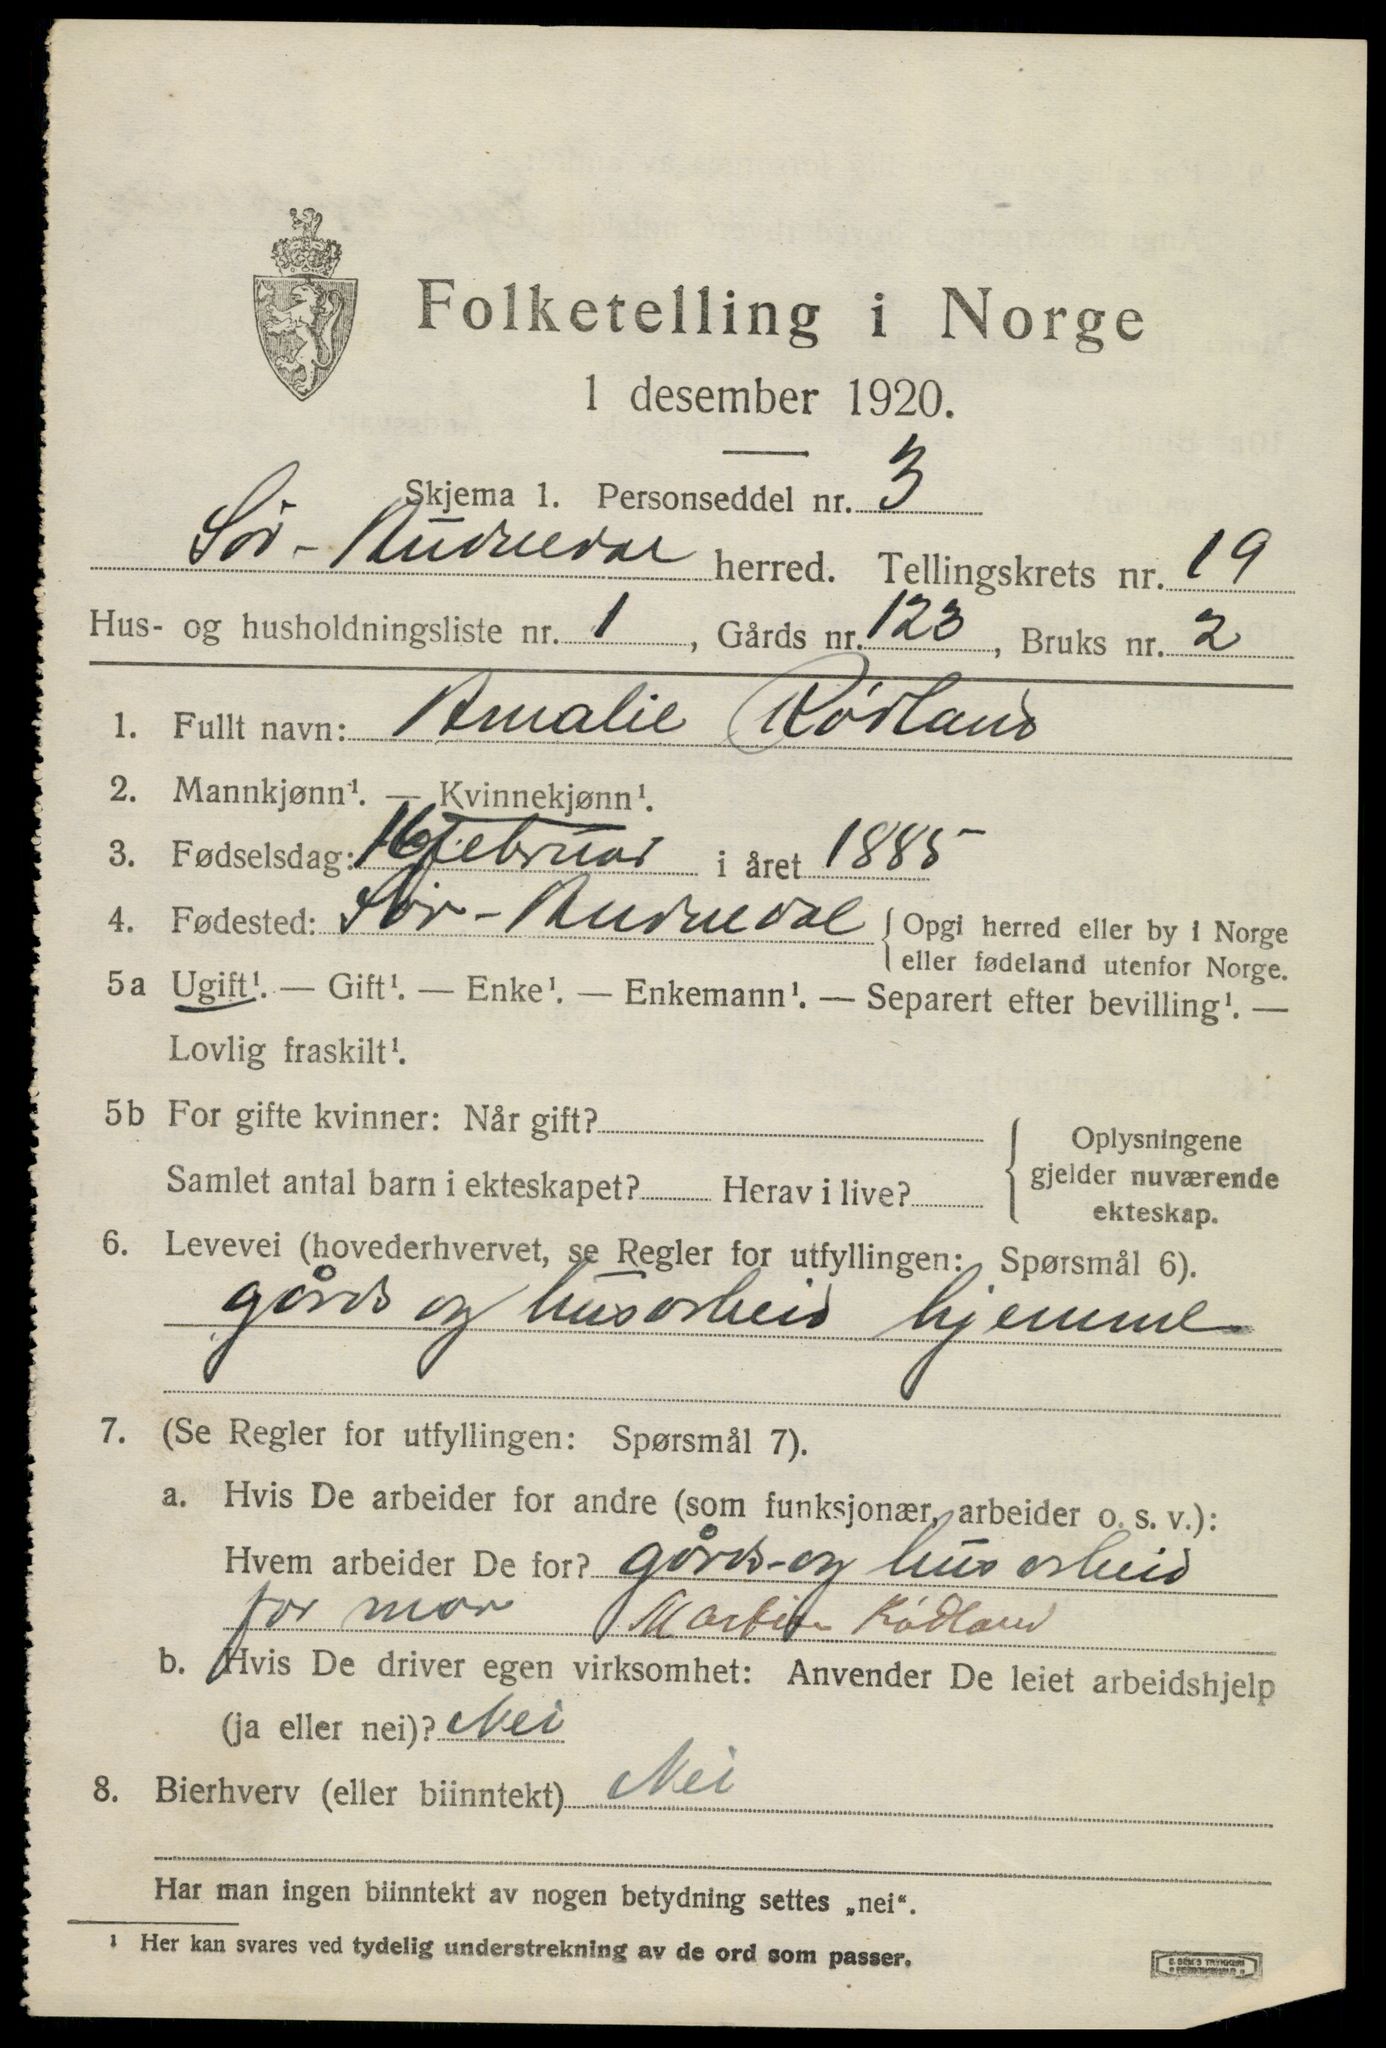 Folketelling i Norge
1 desember 1920.
Skjema 1. Personseddel nr. 3
Sør-Audnedal herred. Tellingskrets nr. 19
Hus- og husholdningsliste nr. 1, Gårds nr. 123, Bruks nr. 2
1. Fullt navn: Amalie Rødland
2. Mannkjønn¹. — Kvinnekjønn¹.
3. Fødselsdag: 16 februar i året 1885
4. Fødested: Sør-Audnedal { Opgi herred eller by i Norge
eller fødeland utenfor Norge.
5a Ugift¹. — Gift¹. — Enke¹. — Enkemann¹. — Separert efter bevilling¹. —
Lovlig fraskilt¹.
5b For gifte kvinner: Når gift?
Samlet antal barn i ekteskapet? Herav i live?
{ Oplysningene
gjelder nuværende
ekteskap.
6. Levevei (hovederhvervet, se Regler for utfyllingen: Spørsmål 6).
gårds og husarbeid hjemme
7. (Se Regler for utfyllingen: Spørsmål 7).
a. Hvis De arbeider for andre (som funksjonær, arbeider o. s. v.):
Hvem arbeider De for? gårds-og husarbeid
for mor Martine Rødland
b. Hvis De driver egen virksomhet: Anvender De leiet arbeidshjelp
(ja eller nei)? Nei
8. Bierhverv (eller biinntekt) Nei
Har man ingen biinntekt av nogen betydning settes „nei“.
¹ Her kan svares ved tydelig understrekning av de ord som passer.